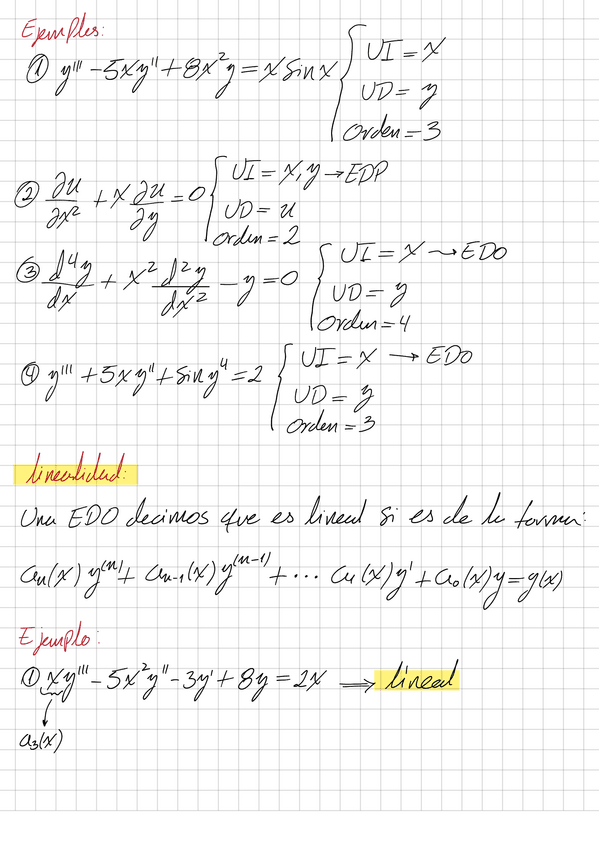 Ejemplos:
① y''' - 5xy'' + 8x²y = x sin x { UI = x
UD = y
Orden = 3
② ∂u/∂x² + x ∂u/∂y = 0 { UI = x, y → EDP
UD = u
Orden = 2
③ d⁴y/dx + x² d²y/dx² - y = 0 { UI = x → EDO
UD = y
Orden = 4
④ y''' + 5xy'' + sin y⁴ = 2 { UI = x → EDO
UD = y
Orden = 3
Linealidad:
Una EDO decimos que es lineal si es de la forma:
aₙ(x) y⁽ⁿ⁾ + aₙ₋₁(x) y⁽ⁿ⁻¹⁾ + ... a₁(x)y' + a₀(x)y = g(x)
Ejemplo:
① xy''' - 5x²y'' - 3y' + 8y = 2x ⟹ lineal
a₃(x)